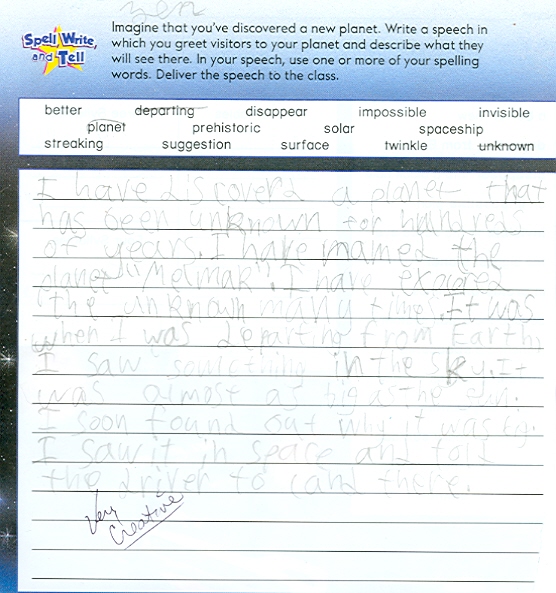 Spell, Write, and Tell
Imagine that you've discovered a new planet. Write a speech in
which you greet visitors to your planet and describe what they
will see there. In your speech, use one or more of your spelling
words. Deliver the speech to the class.
better departing disappear impossible invisible
planet prehistoric solar spaceship
streaking suggestion surface twinkle unknown
I have discoverd a planet that
has been unknown for hundreds
of years. I have mamed the
planet "Melmak". I have
the unknown many times. It was
when I was departing from Earth,
I saw something in the sky. It
was almost as big as the sun.
I soon found out why it was big.
I saw it in space and told
the driver to land there.
Very
Creative